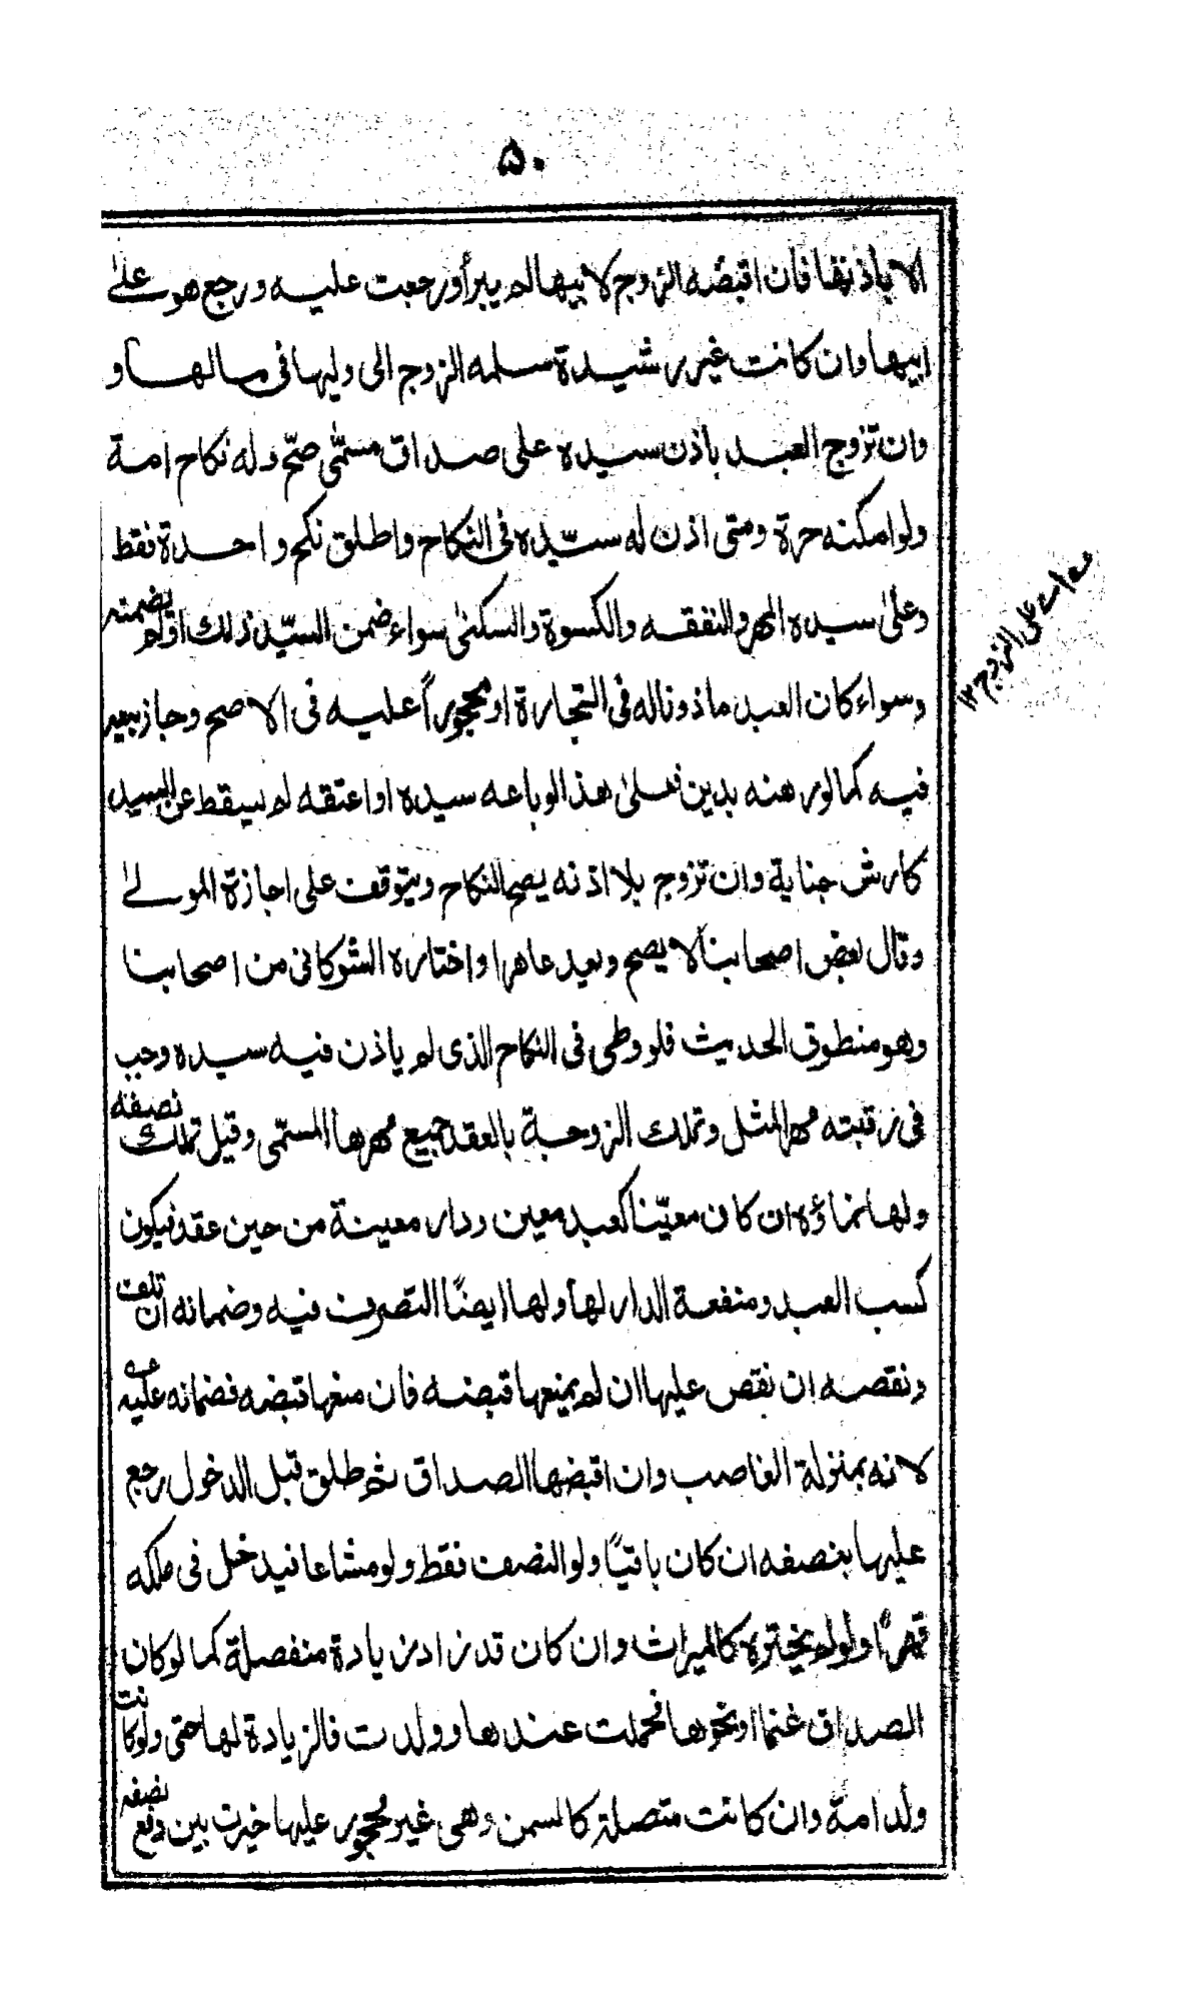 ۵۰
الا باذنها فان اقبضه الزوج لابيها لم يبرأ ورجعت عليه ورجع هو على
ابيها وان كانت غير رشيدة سلمه الزوج الى وليها فى مالها و
وان تزوج العبد باذن سيده على صداق مسمّى صحّ وله نكاح امة
ولو امكنه حرة ومتى اذن له سيّده فى النكاح واطلق نكح واحدة فقط
وعلى سيده المهر والنفقه والكسوة والسكنى سواء ضمن السيّد ذلك اولم يضمنه
وسواء كان العبد ماذوناله فى التجارة او محجوراً عليه فى الاصح وجاز بيعه
فيه كما لو رهنه بدين فعلى هذا لو باعه سيده او اعتقه لم يسقط عن السيد
كارش جناية وان تزوج بلا اذنه يصح النكاح ويتوقف على اجازة المولى
وقال بعض اصحابنا لا يصح ويعد عاهرا واختاره الشوكانى من اصحابنا
وهو منطوق الحديث فلو وطى فى النكاح الذى لم ياذن فيه سيده وجب
فى رقبته مهر المثل وتملك الزوجة بالعقد جميع مهرها المسمّى وقيل تملك نصفه
ولها نماؤه ان كان معيّنا كعبد معين ودار معينة من حين عقد فيكون
كسب العبد ومنفعة الدار لها ولها ايضًا التصرف فيه وضمانه ان تلف
ونقصه ان نقص عليها ان لم يمنعها قبضه فان منعها قبضه فضمانه عليه
لانه بمنزلة الغاصب وان اقبضها الصداق ثم طلق قبل الدخول رجع
عليها بنصفه ان كان باقيًا ولو النصف فقط ولو مشاعا فيدخل فى ملكه
قهرًا ولو لم يختره كالميراث وان كان قد زاد زيادة منفصلة كما لو كان
الصداق غنما او نحوها فحملت عندها وولدت فالزيادة لها حتى ولو كانت
ولد امة وان كانت متصلة كالسمن وهى غير محجور عليها خيرت بين دفع نصفه
اے على الزوج ١٢